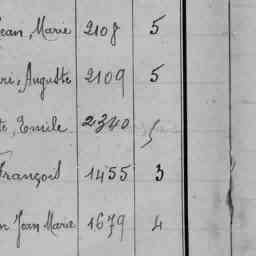 Jean, Marie 2108 5
Auguste 2109 5
Emile 2340 5
François 1455 3
Jean Marie 1679 4